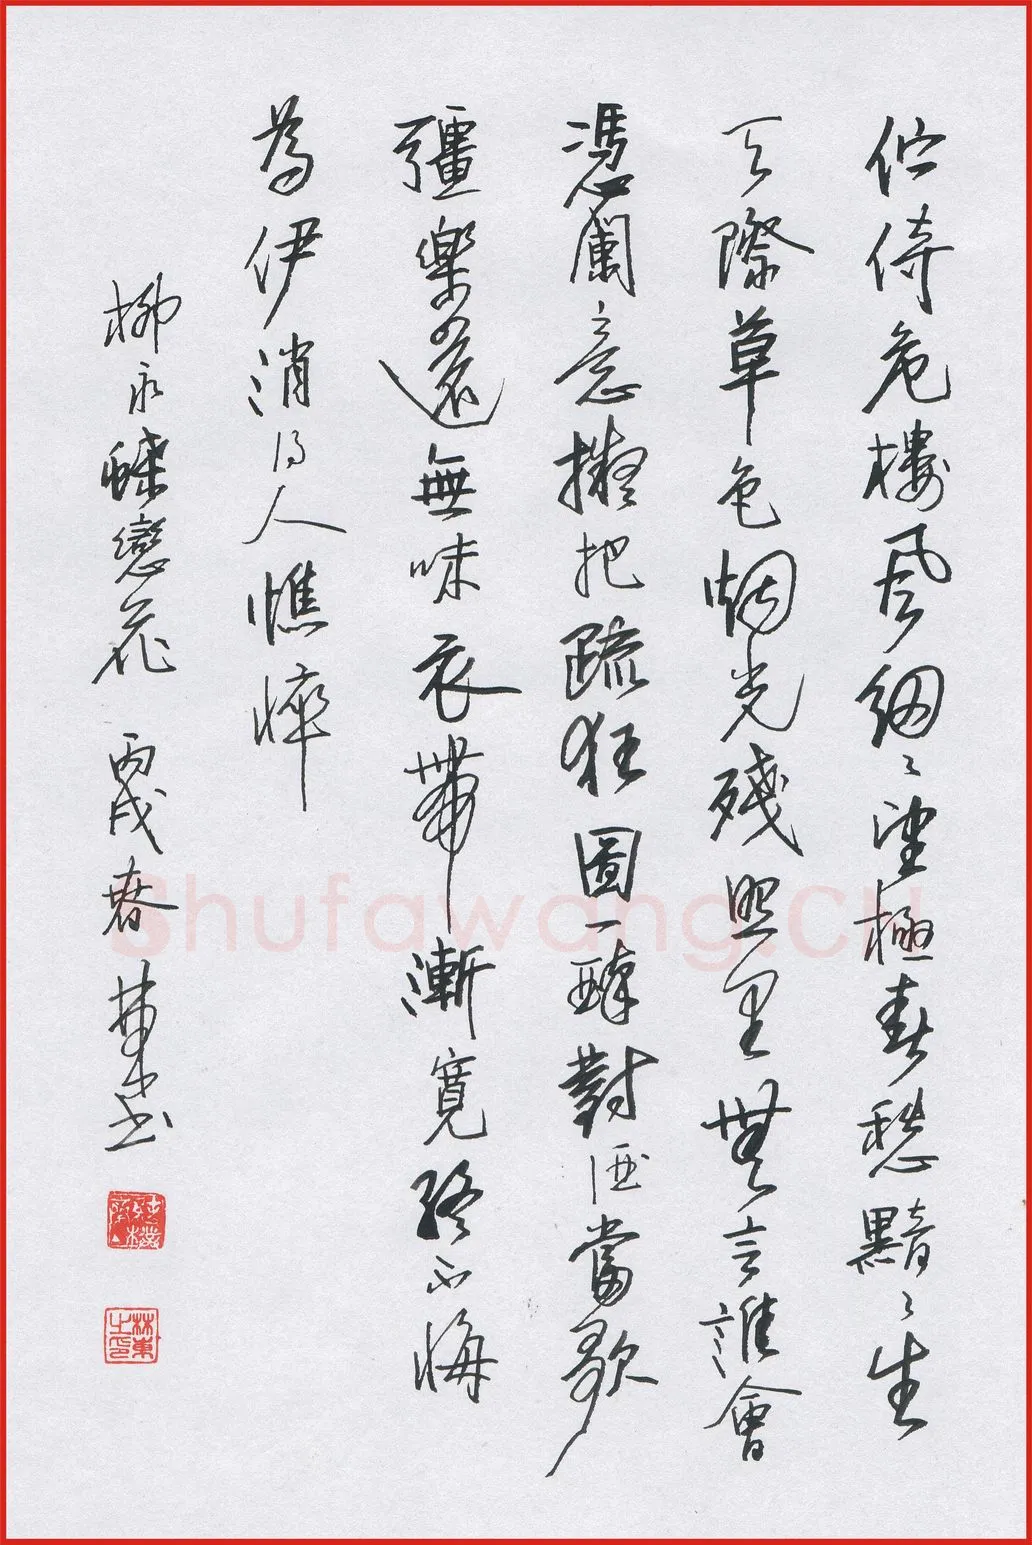 佇倚危樓風細〻望極春愁黯〻生
天際草色烟光殘照里無言誰會
憑闌意擬把疏狂圖一醉對酒當歌
彊樂還無味衣帶漸寬終不悔
為伊消得人憔悴
柳永蝶戀花 丙戌春 林東書
林東之印
Shufawang.CN